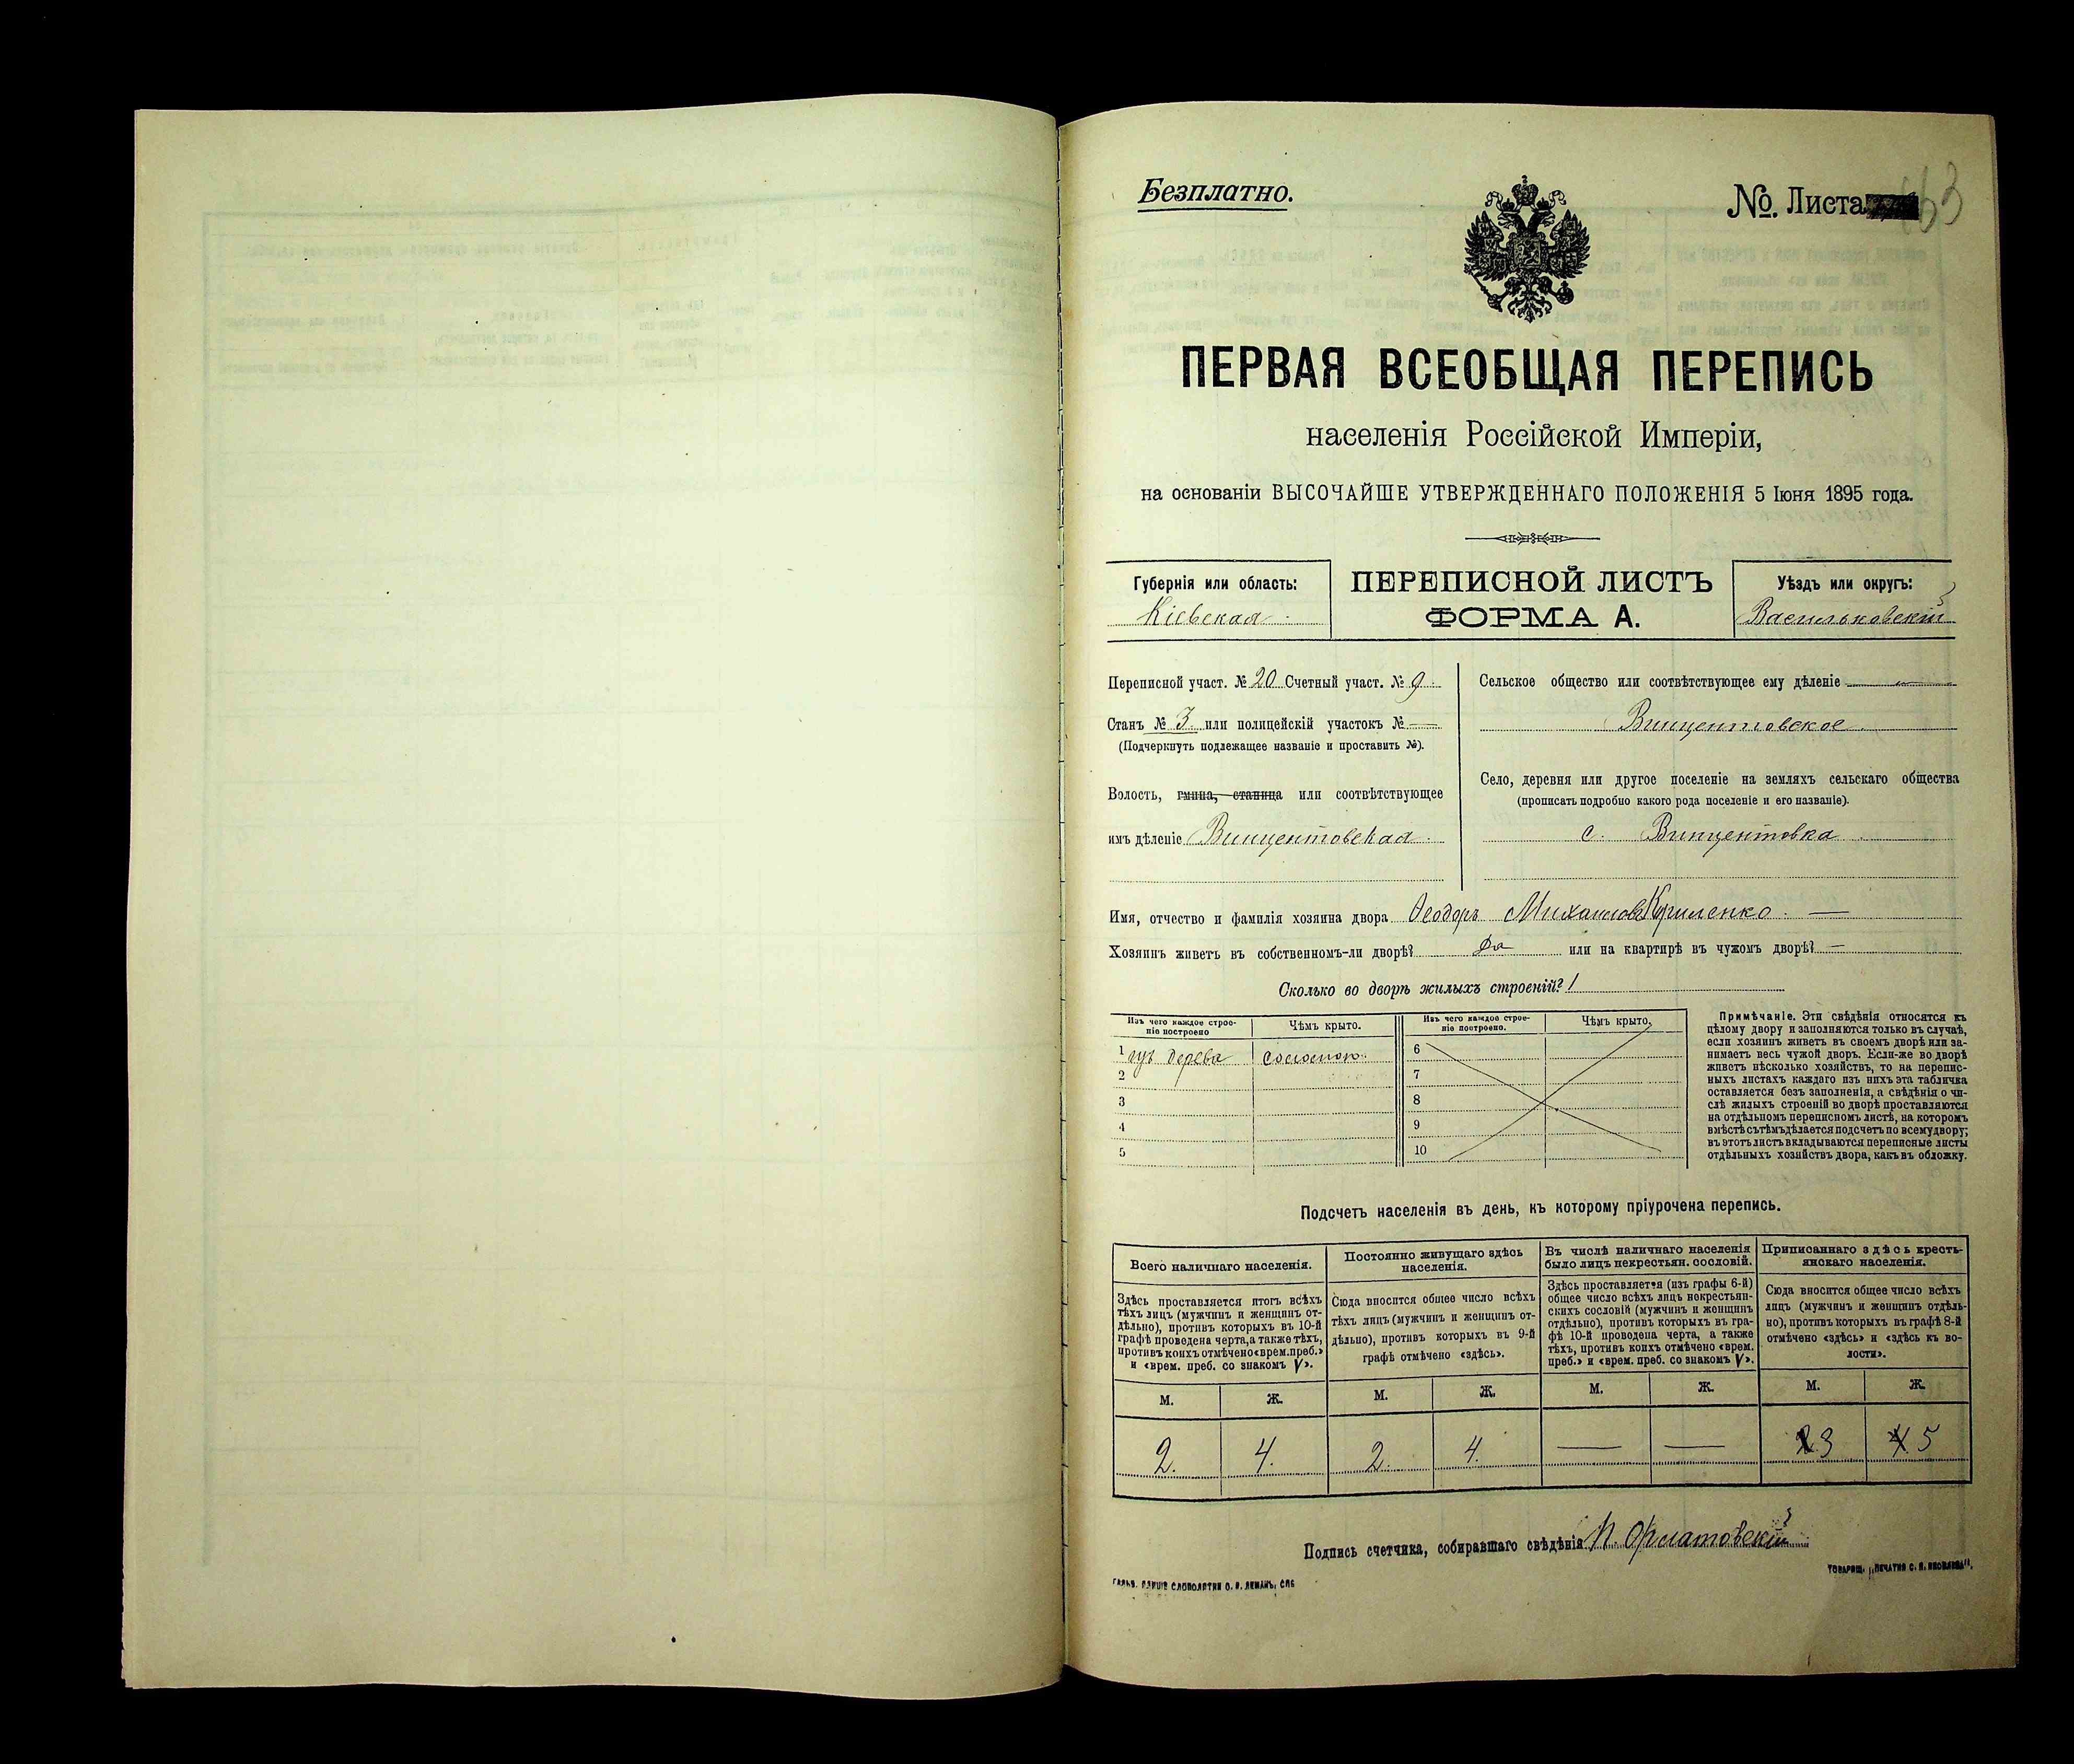 Безплатно.
№. Листа 163
ПЕРВАЯ ВСЕОБЩАЯ ПЕРЕПИСЬ
населенія Россійской Имперіи,
на основаніи ВЫСОЧАЙШЕ УТВЕРЖДЕННАГО ПОЛОЖЕНІЯ 5 Іюня 1895 года.
Губернія или область:
Кіевская
ПЕРЕПИСНОЙ ЛИСТЪ
ФОРМА А.
Уѣздъ или округъ:
Васильковскій
Переписной участ. № 20 Счетный участ. № 9
Станъ № 3 или полицейскій участокъ № —
(Подчеркнуть подлежащее названіе и проставить №).
Волость, гмина, станица или соотвѣтствующее
имъ дѣленіе Винцентовская
Сельское общество или соотвѣтствующее ему дѣленіе —
Винцентовское
Село, деревня или другое поселеніе на земляхъ сельскаго общества
(прописать подробно какого рода поселеніе и его названіе).
с. Винцентовка
Имя, отчество и фамилія хозяина двора Ѳеодоръ Михаиловъ Куриленко. —
Хозяинъ живетъ въ собственномъ-ли дворѣ? Да или на квартирѣ въ чужомъ дворѣ? —
Сколько во дворѣ жилыхъ строеній? 1
Изъ чего каждое строе-
ніе построено
Чѣмъ крыто.
1 изъ дерева соломою
2
3
4
5
Изъ чего каждое строе-
ніе построено.
Чѣмъ крыто.
6
7
8
9
10
Примѣчаніе. Эти свѣдѣнія относятся къ
цѣлому двору и заполняются только въ случаѣ,
если хозяинъ живетъ въ своемъ дворѣ или за-
нимаетъ весь чужой дворъ. Если-же во дворѣ
живетъ нѣсколько хозяйствъ, то на перепис-
ныхъ листахъ каждаго изъ нихъ эта табличка
оставляется безъ заполненія, а свѣдѣнія о чи-
слѣ жилыхъ строеній во дворѣ проставляются
на отдѣльномъ переписномъ листѣ, на которомъ
вмѣстѣ съ тѣмъ дѣлается подсчетъ по всему двору;
въ этотъ листъ вкладываются переписные листы
отдѣльныхъ хозяйствъ двора, какъ въ обложку.
Подсчетъ населенія въ день, къ которому пріурочена перепись.
Всего наличнаго населенія.
Здѣсь проставляется итогъ всѣхъ
тѣхъ лицъ (мужчинъ и женщинъ от-
дѣльно), противъ которыхъ въ 10-й
графѣ проведена черта, а также тѣхъ,
противъ коихъ отмѣчено «врем. преб.»
и «врем. преб. со знакомъ V».
М. Ж.
2. 4.
Постоянно живущаго здѣсь
населенія.
Сюда вносится общее число всѣхъ
тѣхъ лицъ (мужчинъ и женщинъ от-
дѣльно), противъ которыхъ въ 9-й
графѣ отмѣчено «здѣсь».
М. Ж.
2. 4.
Въ числѣ наличнаго населенія
было лицъ некрестьян. сословій.
Здѣсь проставляется (изъ графы 6-й)
общее число всѣхъ лицъ некрестьян-
скихъ сословій (мужчинъ и женщинъ
отдѣльно), противъ которыхъ въ гра-
фѣ 10-й проведена черта, а также
тѣхъ, противъ коихъ отмѣчено «врем.
преб.» и «врем. преб. со знакомъ V».
М. Ж.
— —
Приписаннаго здѣсь кресть-
янскаго населенія.
Сюда вносится общее число всѣхъ
лицъ (мужчинъ и женщинъ отдѣль-
но), противъ которыхъ въ графѣ 8-й
отмѣчено «здѣсь» и «здѣсь къ во-
лости».
М. Ж.
2 3 4 5
Подпись счетчика, собиравшаго свѣдѣнія